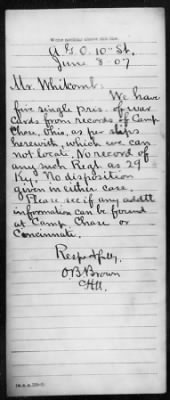 Write nothing above this line.
Q. G. O. 10 St.
June 8-07
Mr. Whitcomb:
We have
five single pris. of war
Cards from records of Camp
Chase, Ohio, as per slips
herewith, which we can
not locate. No record of
any such Regt. as 29
Ky. No disposition
given in either case.
Please see if any addtl
information can be found
at Camp Chase or
Concinnate.
Respectfully,
O B Brown